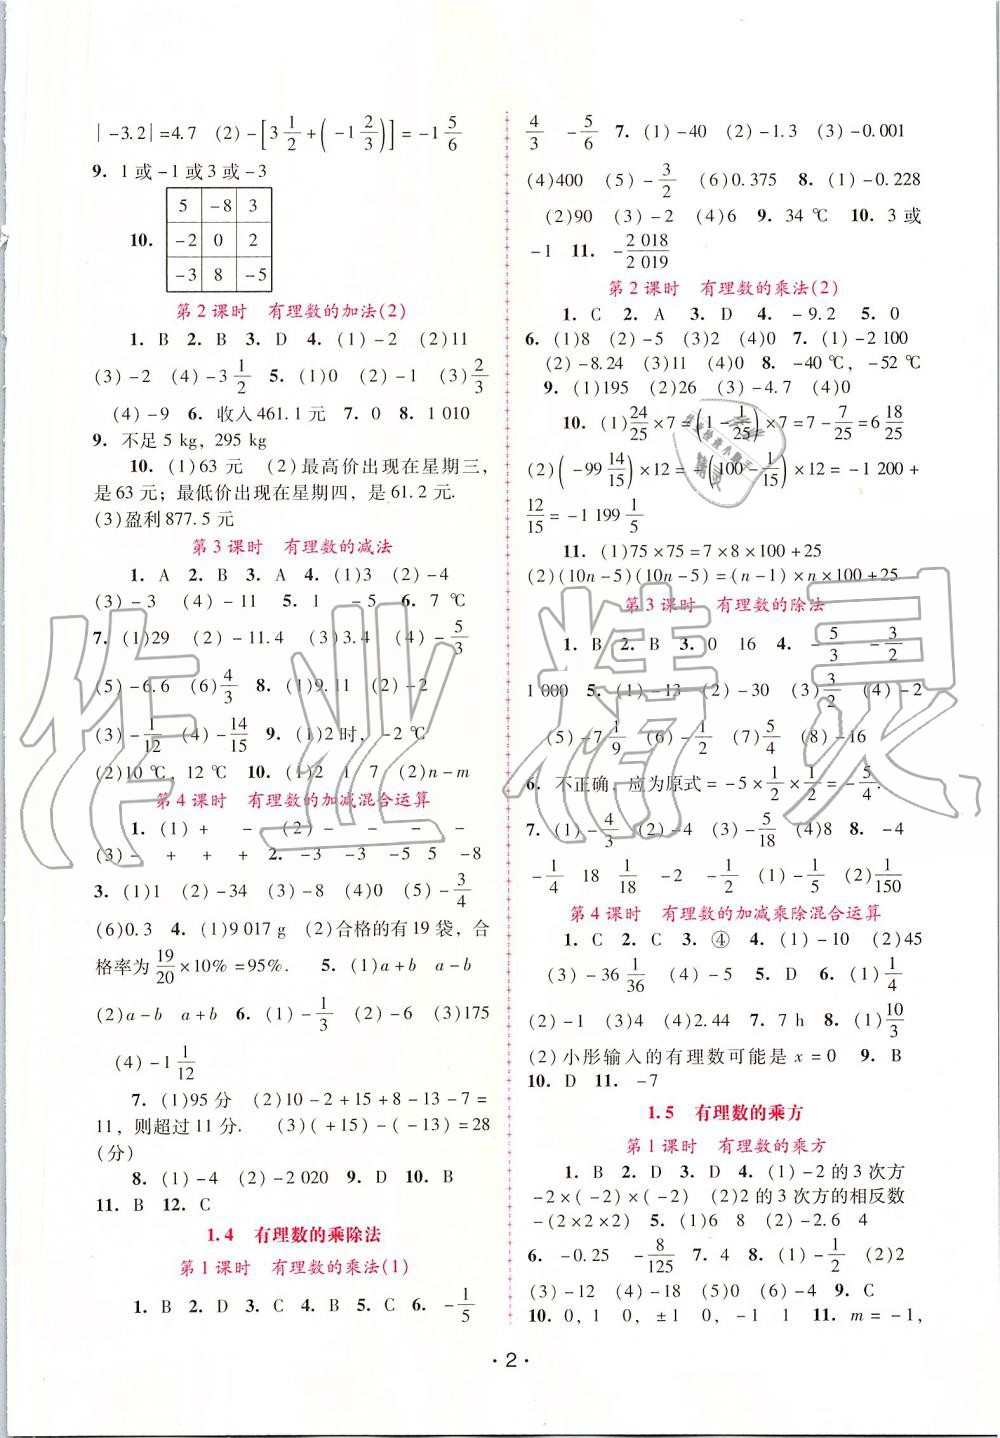 |-3.2|=4.7 (2)-[3 1/2+(-1 2/3)]=-1 5/6
9. 1或-1或3或-3
10.
5 -8 3
-2 0 2
-3 8 -5
第2课时 有理数的加法(2)
1. B 2. B 3. D 4. (1)-2 (2)11
(3)-2 (4)-3 1/2 5. (1)0 (2)-1 (3)2/3
(4)-9 6. 收入461.1元 7. 0 8. 1 010
9. 不足5 kg, 295 kg
10. (1)63元 (2)最高价出现在星期三,
是63元;最低价出现在星期四,是61.2元.
(3)盈利877.5元
第3课时 有理数的减法
1. A 2. B 3. A 4. (1)3 (2)-4
(3)-3 (4)-11 5. 1 -5 6. 7 ℃
7. (1)29 (2)-11.4 (3)3.4 (4)-5/3
(5)-6.6 (6)4/3 8. (1)9.11 (2)-2
(3)-1/12 (4)-14/15 9. (1)2时, -2℃
(2)10 ℃, 12 ℃ 10. (1)2 1 7 (2)n-m
第4课时 有理数的加减混合运算
1. (1)+ - (2)- - - -
(3)- + + + 2. -3 -3 -5 5 -8
3. (1)1 (2)-34 (3)-8 (4)0 (5)-3/4
(6)0.3 4. (1)9 017 g (2)合格的有19袋,合
格率为19/20×10%=95%. 5. (1)a+b a-b
(2)a-b a+b 6. (1)-1/3 (2)-6 (3)175
(4)-1 1/12
7. (1)95分 (2)10-2+15+8-13-7=
11, 则超过11分. (3)(+15)-(-13)=28
(分)
8. (1)-4 (2)-2 020 9. D 10. B
11. B 12. C
1.4 有理数的乘除法
第1课时 有理数的乘法(1)
1. B 2. D 3. C 4. B 5. C 6. -1/5
4/3 -5/6 7. (1)-40 (2)-1.3 (3)-0.001
(4)400 (5)-3/2 (6)0.375 8. (1)-0.228
(2)90 (3)-2 (4)6 9. 34 ℃ 10. 3或
-1 11. -2 018/2 019
第2课时 有理数的乘法(2)
1. C 2. A 3. D 4. -9.2 5. 0
6. (1)8 (2)-5 (3)2 (4)0 7. (1)-2 100
(2)-8.24 (3)11 (4)0 8. -40 ℃, -52 ℃
9. (1)195 (2)26 (3)-4.7 (4)0
10. (1)24/25×7=(1-1/25)×7=7-7/25=6 18/25
(2)(-99 14/15)×12=-(100-1/15)×12=-1 200+
12/15=-1 199 1/5
11. (1)75×75=7×8×100+25
(2)(10n-5)(10n-5)=(n-1)×n×100+25
第3课时 有理数的除法
1. B 2. B 3. 0 16 4. -5/3 -3/2
1 000 5. (1)-13 (2)-30 (3)3/2 (4)-2
(5)-7 1/9 (6)-1/2 (7)5/4 (8)-16
6. 不正确,应为原式=-5×1/2×1/2=-5/4.
7. (1)-4/3 (2)-4 (3)-5/18 (4)8 8. -4
-1/4 18 1/18 -2 -1/2 (1)-1/5 (2)1/150
第4课时 有理数的加减乘除混合运算
1. C 2. C 3. ④ 4. (1)-10 (2)45
(3)-36 1/36 (4)-5 5. D 6. (1)1/4
(2)-1 (3)4 (4)2.44 7. 7 h 8. (1)10/3
(2)小彤输入的有理数可能是x=0 9. B
10. D 11. -7
1.5 有理数的乘方
第1课时 有理数的乘方
1. B 2. D 3. D 4. (1)-2的3次方
-2×(-2)×(-2) (2)2的3次方的相反数
-(2×2×2) 5. (1)6 8 (2)-2.6 4
6. -0.25 -8/125 7. 4 8. (1)-1/2 (2)2
(3)-12 (4)-18 (5)0 (6)-4 9. C
10. 0, 1 0, ±1 0, -1 1 11. m=-1,
·2·
作业精灵